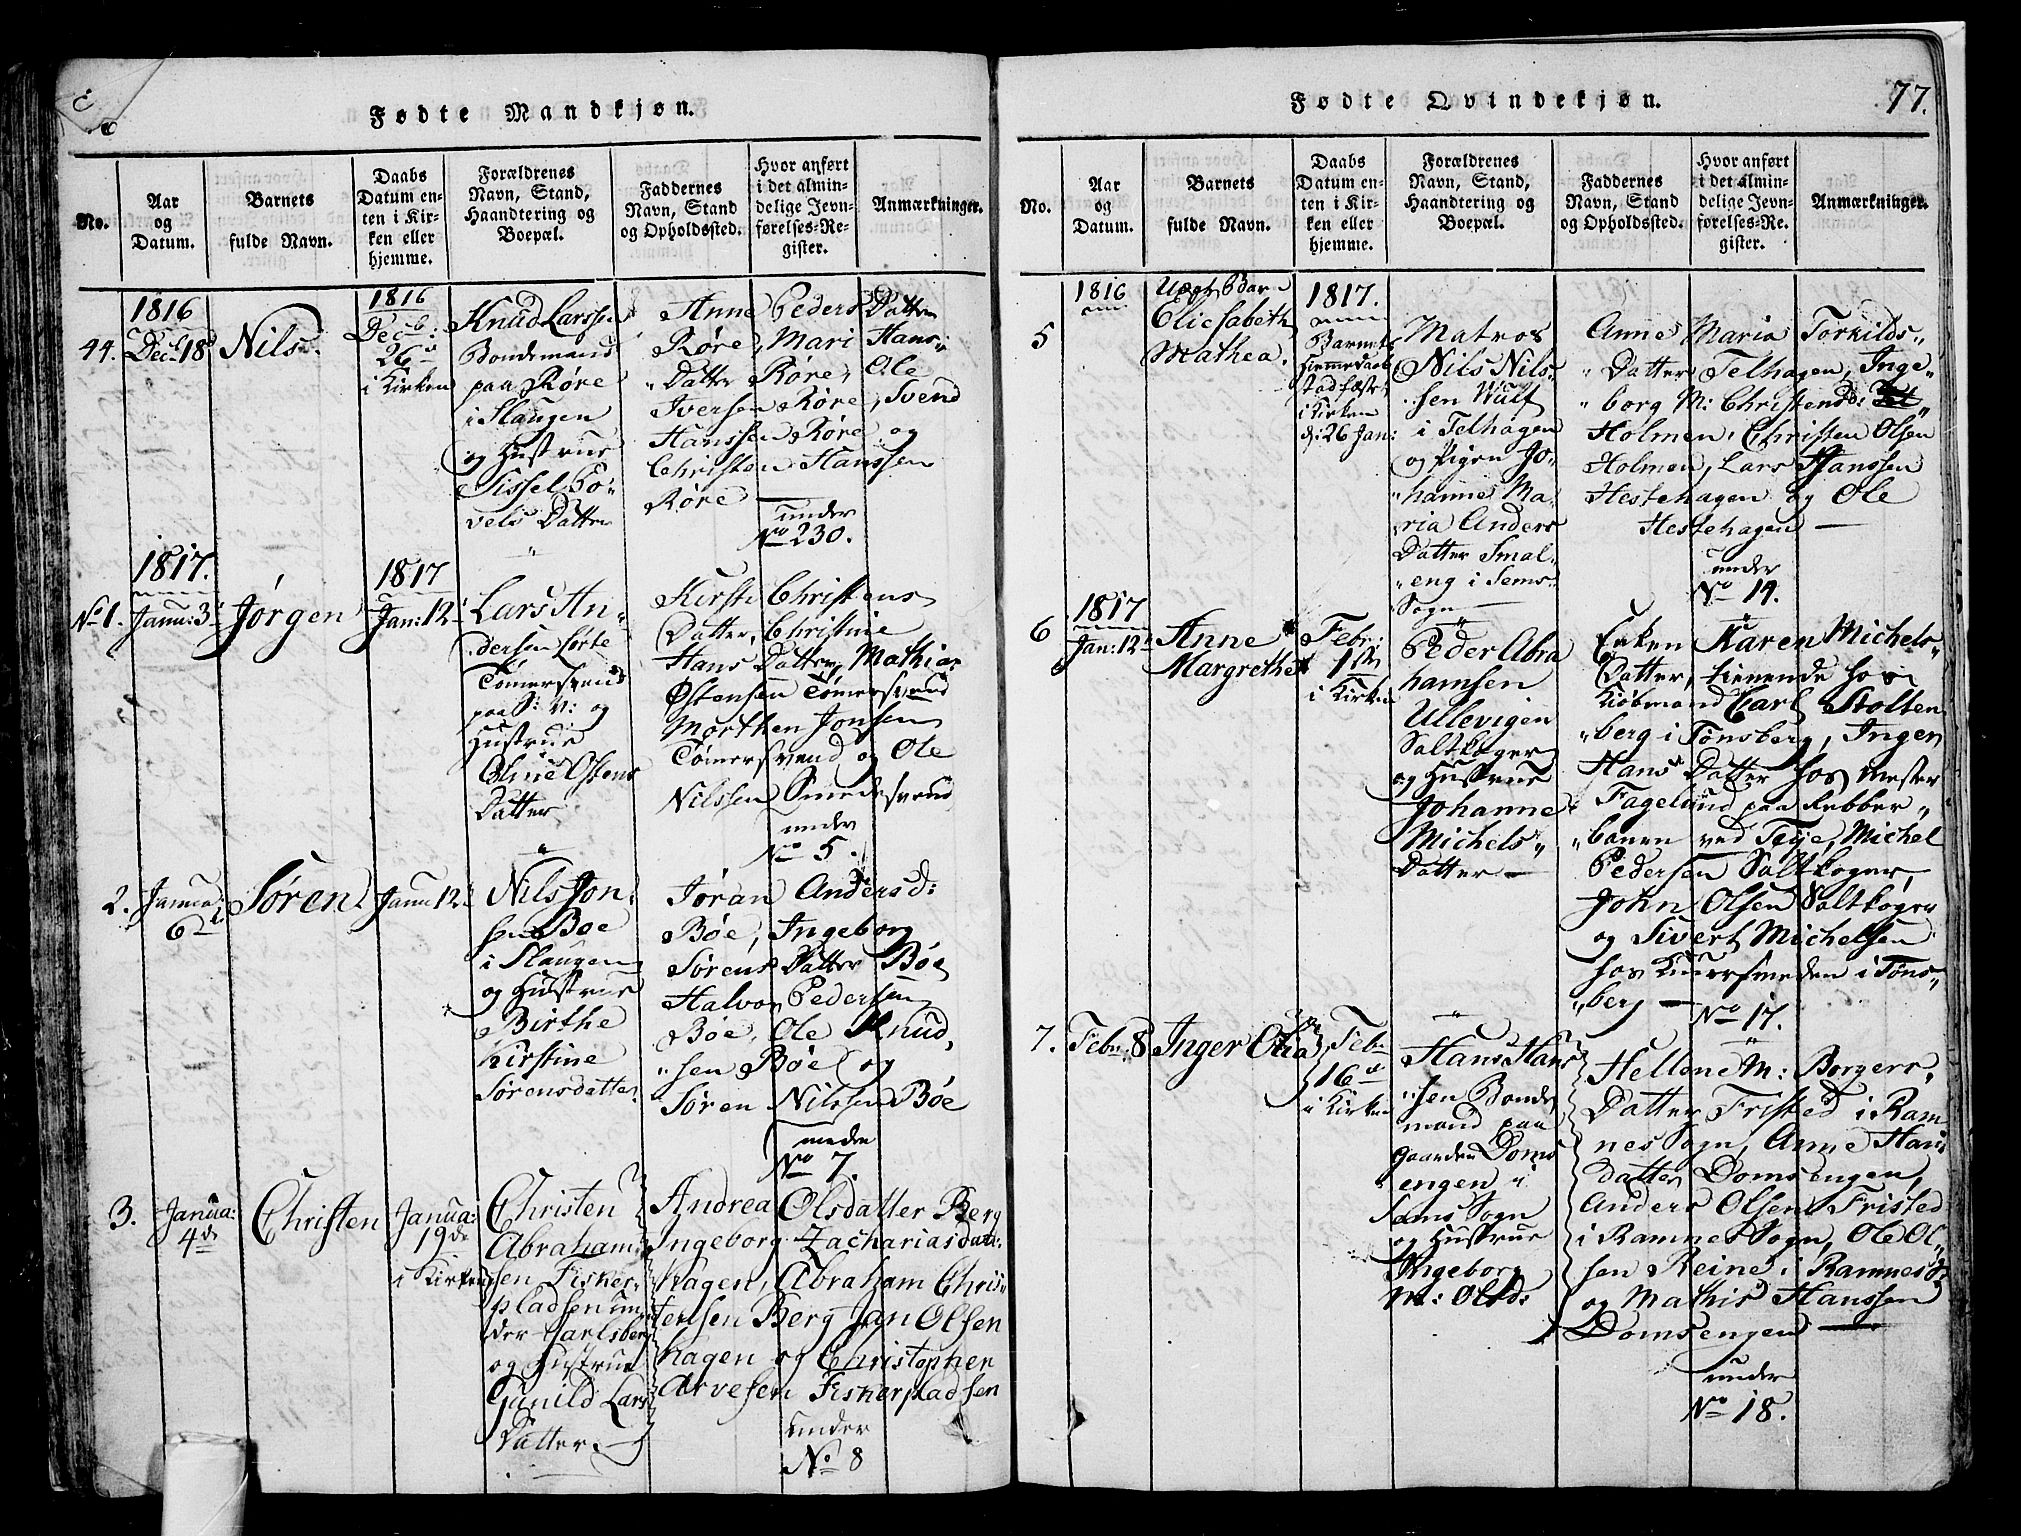 Fødte Mandkjøn.
No.
Aar
og
Datum.
Barnets
fulde Navn.
Daabs
Datum en-
ten i Kir-
ken eller
hjemme.
Forældrenes
Navn, Stand,
Haandtering og
Boepæl.
Faddernes
Navn, Stand
og Opholdssted.
Hvor anført
i det almin-
delige Jevn-
førelses-Re-
gister.
Anmærkninger.
1816
44.
Decb 18d
Nils
1816
Decb:
26
i Kirken
Knud Larssen
Bondemand
paa Røre
i Slaugen
og Hustrue
Sissel Bo-
vels Datter
Anne Peders Datter
Røre, Mari Hans-
Datter Røre, Ole
Iversen Røre, Svend
Hanssen Røre og
Christen Hanssen
Røre
under
No 230.
1817.
No 1.
Janu: 3
Jørgen
1817
Jan: 12
Lars An-
dersen Lorte
Tømersvend
paa S: V: og
Hustrue
Oline Ostens
Datter
Kirsti Christens
Datter, Christine
Hans Datter, Mathias
Østensen Tømersvend
Morthen Jonsen
Tømersvend og Ole
Nilssen Smedesvend
under
No 5.
2.
Janua:
6
Søren
Janu 12
Nils Jon-
sen Boe
i Slaugen
og Hustrue
Birthe
Kirstine
Sørensdatter
Jøran Andersd:
Bøe, Ingeborg
Sørens Datter Bøe
Halvor Pedersen
Bøe, Ole Knud-
sen Bøe og
Søren Nilssen Bøe
under
No 7.
3.
Janua:
4de
Christen
Janua:
19de
i Kirken
Christen
Abraham-
sen Fisker-
pladsen un-
der Carlsberg
og Hustrue
Gunild Lars
Datter
Andrea Olsdatter Berg
Ingeborg Zachariasdatt:
hagen, Abraham Chris-
tensen Berg Jan Olsen
hagen og Christopher
Arvesen Fiskerpladsen
under
No 8
Fødte Qvindekjøn.
77.
No.
Aar
og
Datum.
Barnets
fulde Navn.
Daabs
Datum en-
ten i Kir-
ken eller
hjemme.
Forældrenes
Navn, Stand,
Haandtering og
Boepæl.
Faddernes
Navn, Stand
og Opholdssted.
Hvor anført
i det almin-
delige Jevn-
førelses-Re-
gister.
Anmærkninger.
5
1816
Uægt Barn
Eliesabeth
Mathea.
1817.
Barnets
Hiemmedaab
stadfæstet
i Kirken
d: 26 Jan:
Matros
Nils Nils-
sen Wulf
i Telhagen
og Pigen Jo-
hanne Ma-
ria Anders
Datter Smal-
eng i Sems
Sogn
Anne Maria Torkilds-
Datter Telhagen, Inge-
borg M: Christensd:
Holmen, Christen Olsen
Holmen, Lars Hanssen
Hestehagen og Ole
Hestehagen
under
No 14.
1817
6
Jan: 12
Anne
Margrethe
Febr:
1ste
i Kirken
Peder Abra
hamsen
Ullevigen
Saltkoger
og Hustrue
Johanne
Michels-
Datter
Enken Karen Michels-
Datter, tienende hos
Kiøbmand Carl Stolten
berg i Tønsberg, Ingen
Hans Datter hos mester
Fagelund paa Rebber-
banen ved Teye, Michel
Pedersen Saltkoger,
John Olsen Saltkoger
og Sivert Michelsen
hos Kuursmeden i Tøns-
berg
No 17.
7.
Febr: 8
Inger Olia
Feb
16
i Kirken
Hans Hans
sen Bonde
mand paa
Gaarden Doms
engen i
Sems Sogn
og Hustrue
Ingeborg
M: Olsd:
Hellene M: Borgers
Datter Fristed i Ram
nes Sogn, Anne Hans
datter Domsengen,
Anders Olsen Fristed
i Ramnes Sogn, Ole Ol-
sen Reine i Ramnes S:
og Mathis Hanssen
Domsengen
under
No 18.